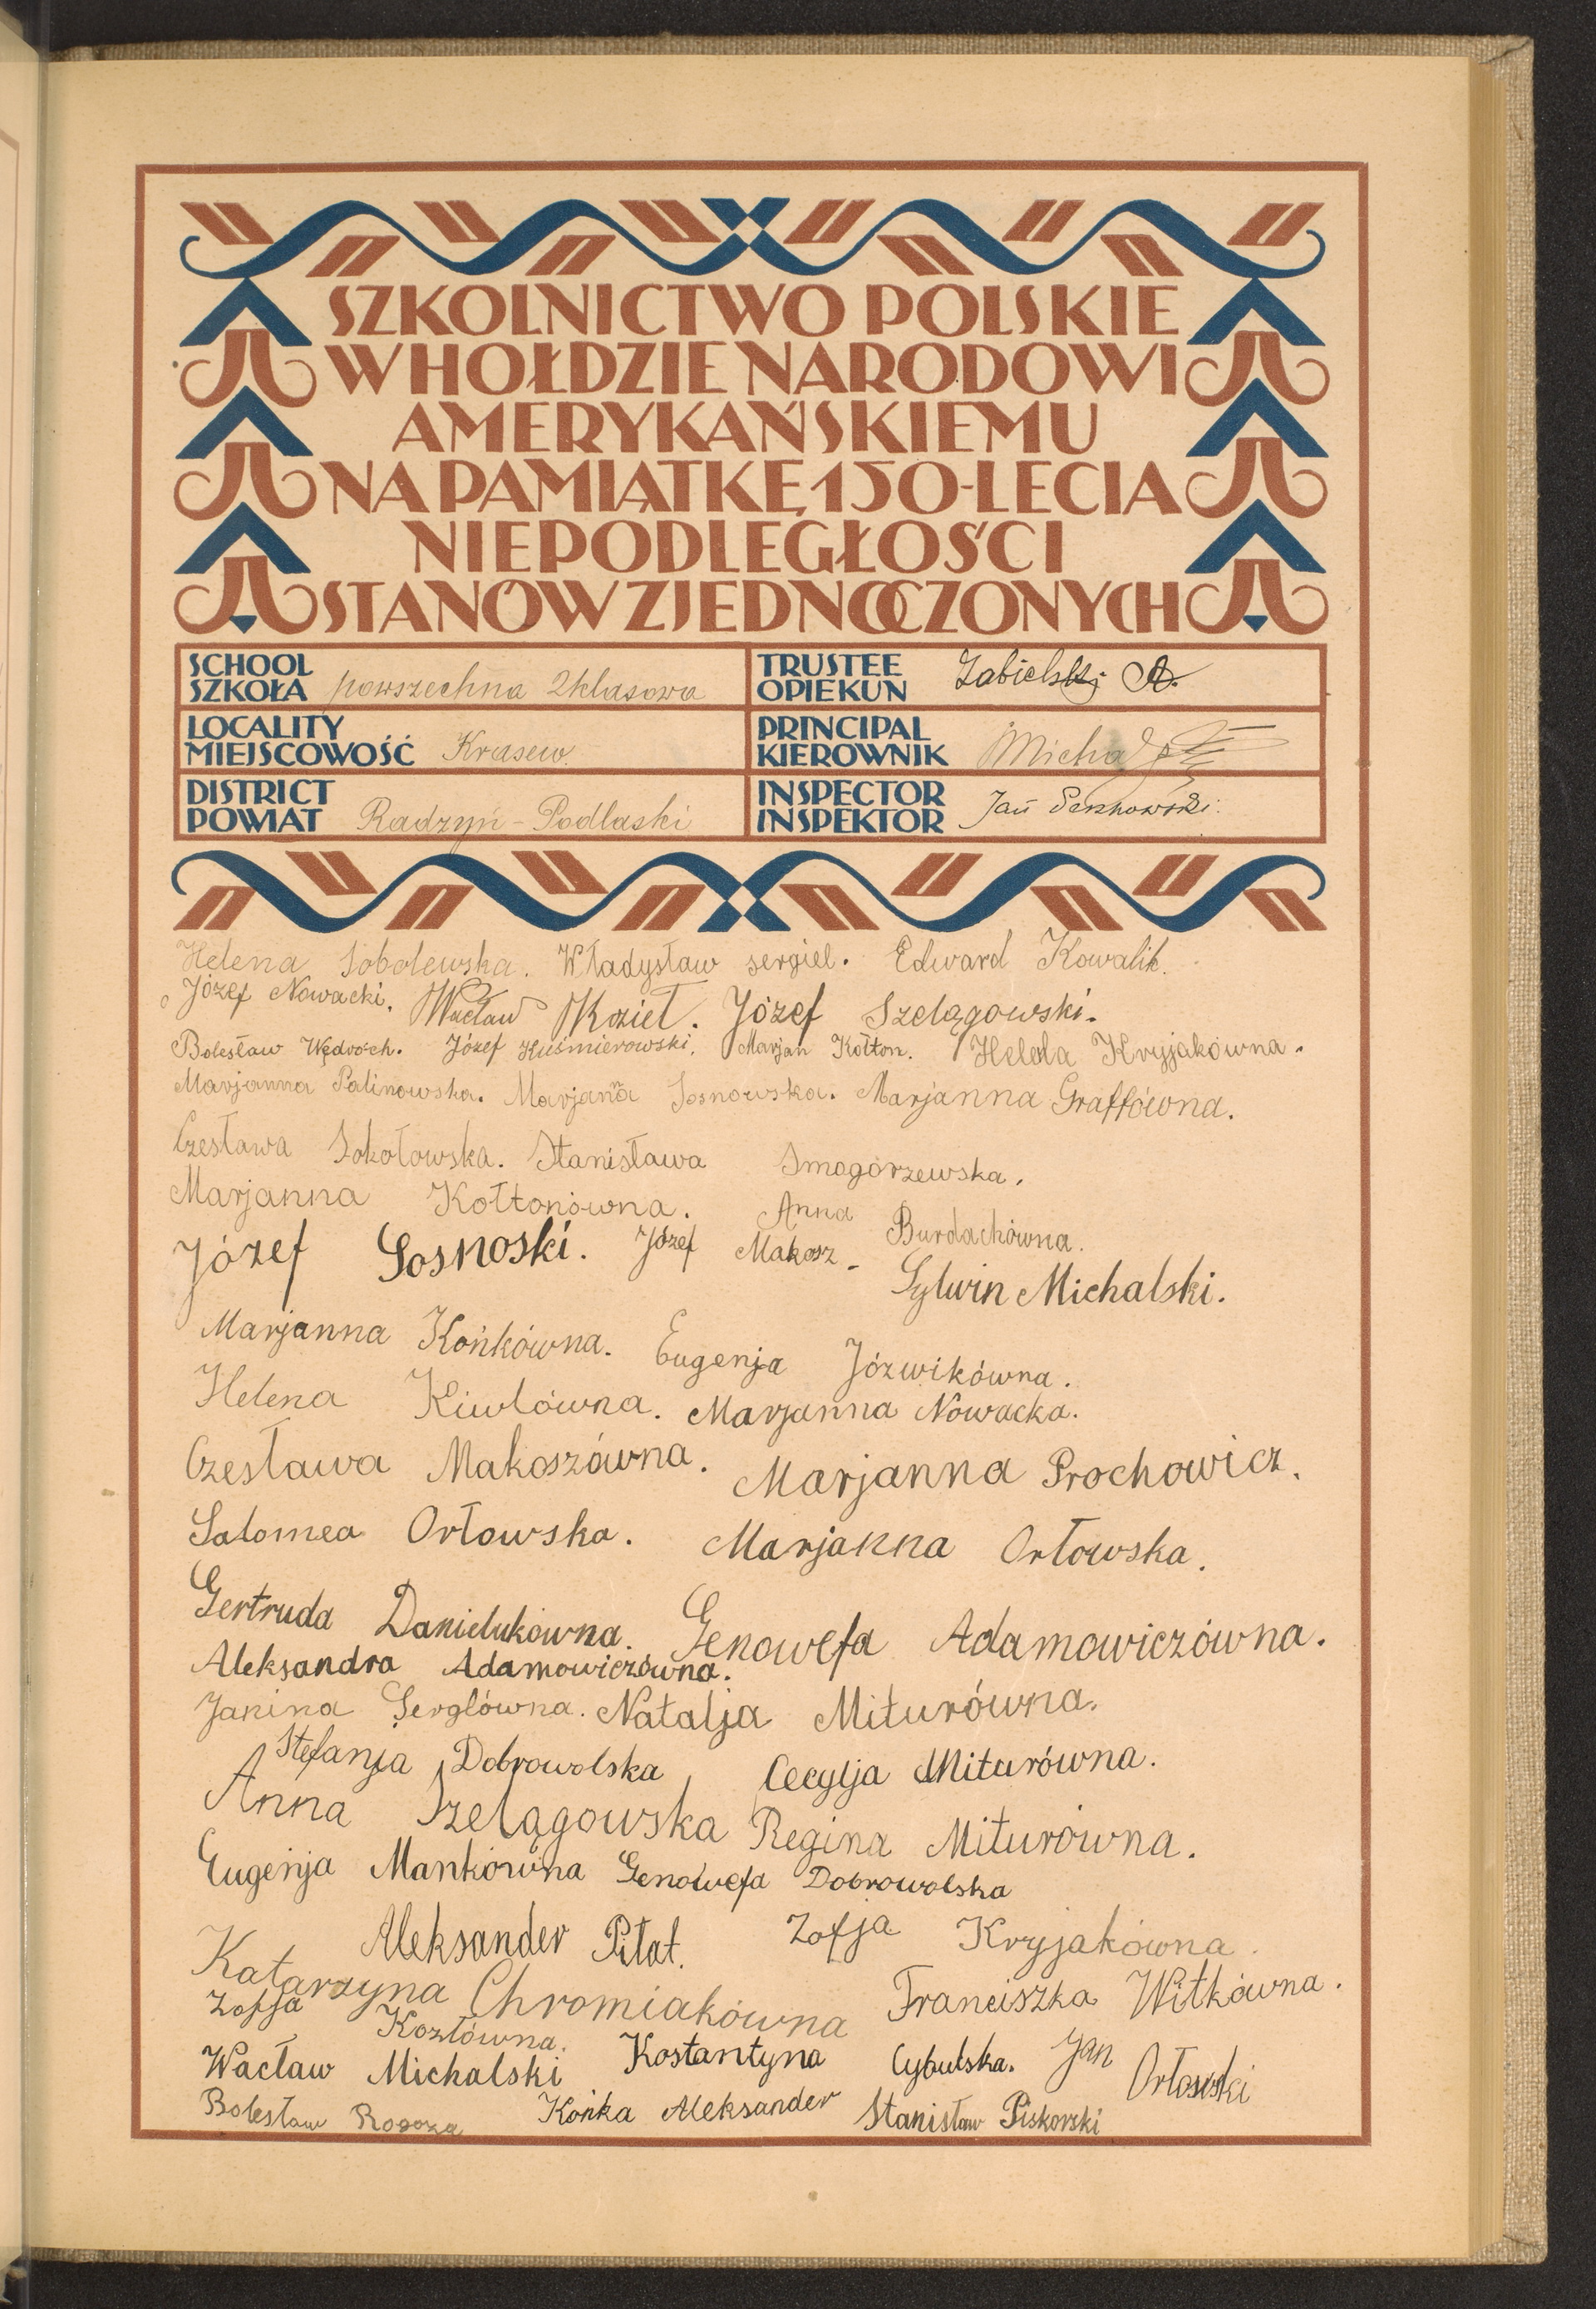 SZKOLNICTWO POLSKIE
W HOŁDZIE NARODOWI
AMERYKAŃSKIEMU
NA PAMIĄTKĘ 150-LECIA
NIEPODLEGŁOŚCI
STANÓW ZJEDNOCZONYCH
SCHOOL
SZKOŁA powszechna 2klasowa
TRUSTEE
OPIEKUN Zabielski A.
LOCALITY
MIEJSCOWOŚĆ Krasew.
PRINCIPAL
KIEROWNIK
DISTRICT
POWIAT Radzyń-Podlaski
INSPECTOR
INSPEKTOR Jan
Helena Sobolewska. Władysław sergiel. Edward Kowalik.
Józef Nowacki. Wacław Kozieł. Józef Szelągowski.
Bolesław Wędroch. Józef Kuśmierowski. Marjan Kołton. Helela Kryjakówna.
Marjanna Palinowska. Marjanna Sosnowska. Marjanna Graffówna.
Czesława Sokołowska. Stanisława Smogorzewska.
Marjanna Kołtonówna. Anna Burdachówna.
Józef Sosnoski. Józef Makosz. Sylwin Michalski.
Marjanna Końkówna. Eugenja Józwikówna.
Helena Kiwlówna. Marjanna Nowacka.
Czesława Makoszówna. Marjanna Prochowicz.
Salomea Orłowska. Marjanna Orłowska.
Gertruda Danielukówna. Genowefa Adamowiczówna.
Aleksandra Adamowiczówna.
Janina Serglówna. Natalja Miturówna.
Stefanja Dobrowolska Cecylja Miturówna.
Anna Szelągowska Regina Miturówna.
Eugenja Mankówna Genowefa Dobrowolska
Aleksander Piłat. Zofja Kryjakówna.
Katarzyna Chromiakówna Franciszka Witkówna.
Zofja Kozłówna.
Wacław Michalski Kostantyna Cybulska. Jan Orłowski
Bolesław Rogoza Końka Aleksander Stanisław Piskorski